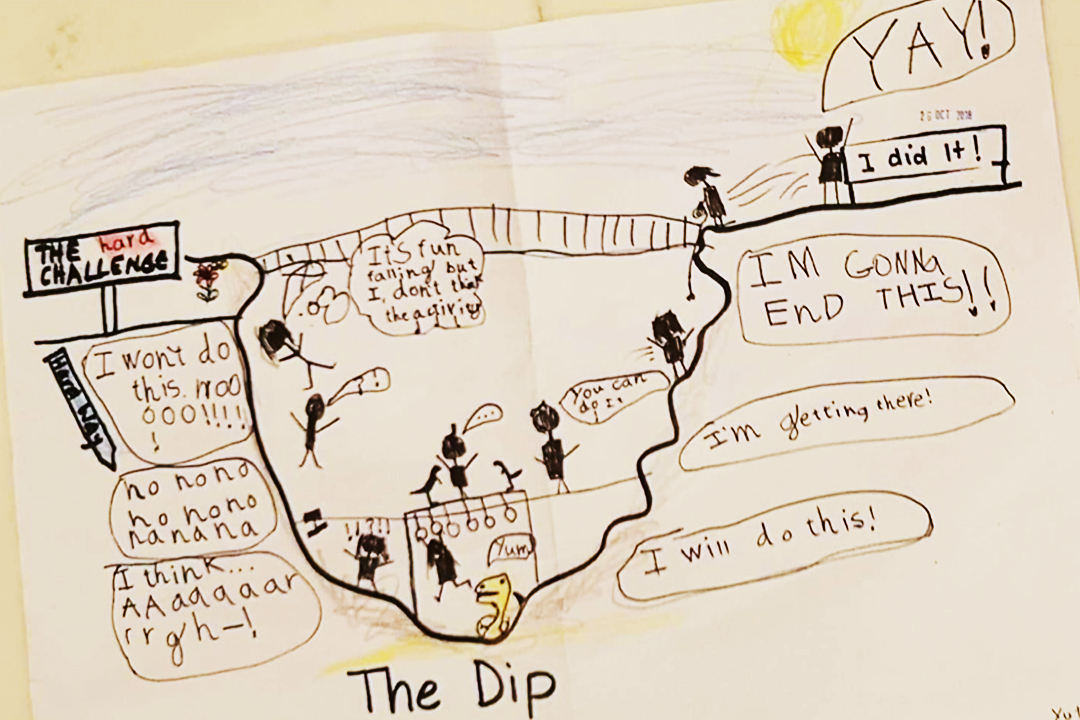 YAY!
26 OCT 2018
I did It!
THE hard
CHALLENGE
It's fun
falling but
I don't thik
the agivity
!
IM GONNA
END THIS!!
Hard Way
I won't do
this. noo
ooo!!!!
!
??!
You can
do it
!
I'm getting there!
...
no no no
no no no
nanana
!!?!!
Yum
I will do this!
I think...
AAaaaaar
rrgh-!
The Dip